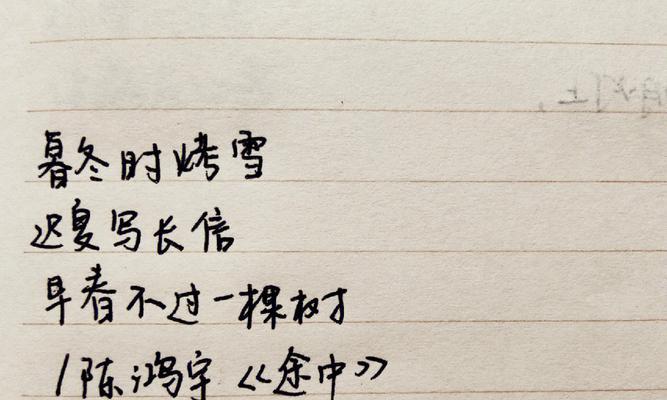 暮冬时烤雪
迟夏写长信
早春不过一棵树
/陈鸿宇《途中》